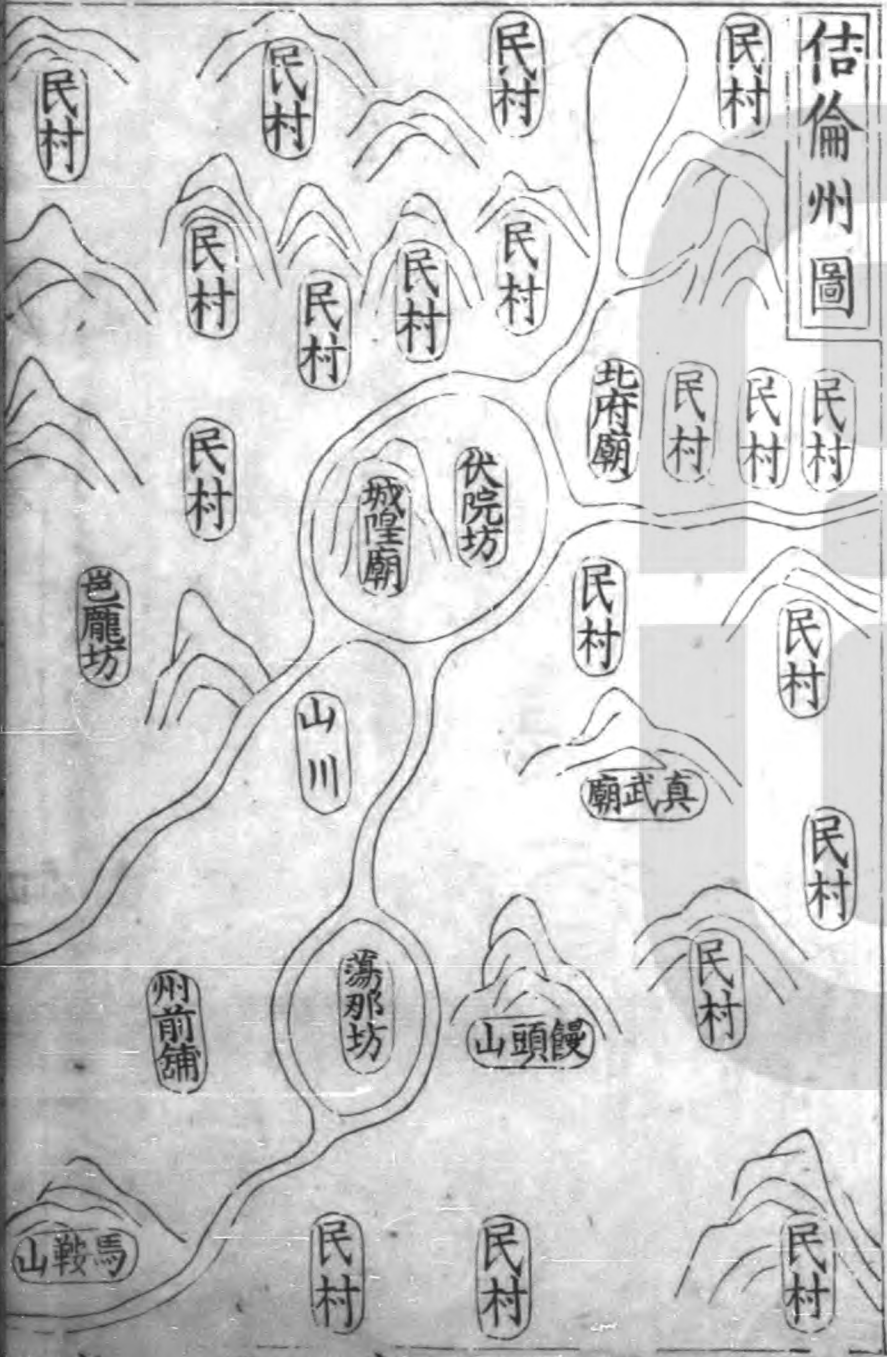 佶倫州圖
民村
民村
民村
民村
民村
民村
民村
民村
北府廟
民村
民村
民村
民村
伏院坊
城隍廟
邕龎坊
民村
民村
山川
真武廟
民村
民村
饅頭山
蕩那坊
州前舖
馬鞍山
民村
民村
民村